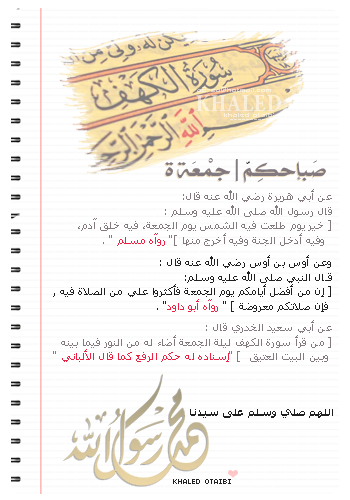 سورة الكهف
KHALED
الله الرحمن الرحيم
صباحكم | جمعة
عن أبي هريرة رضي الله عنه قال:
قال رسول الله صلى الله عليه وسلم :
[ خير يوم طلعت فيه الشمس يوم الجمعة، فيه خلق آدم،
وفيه أدخل الجنة وفيه أخرج منها ]" رواه مسلم " .
وعن أوس بن أوس رضي الله عنه قال :
قال النبي صلى الله عليه وسلم:
[ إن من أفضل أيامكم يوم الجمعة فأكثروا علي من الصلاة فيه ,
فإن صلاتكم معروضة ] " رواه أبو داود" .
عن أبي سعيد الخدري قال :
[ من قرأ سورة الكهف ليلة الجمعة أضاء له من النور فيما بينه
وبين البيت العتيق ] "إسناده له حكم الرفع كما قال الألباني "
اللهم صلي وسلم على سيدنا
محمد رسول الله
KHALED OTAIBI